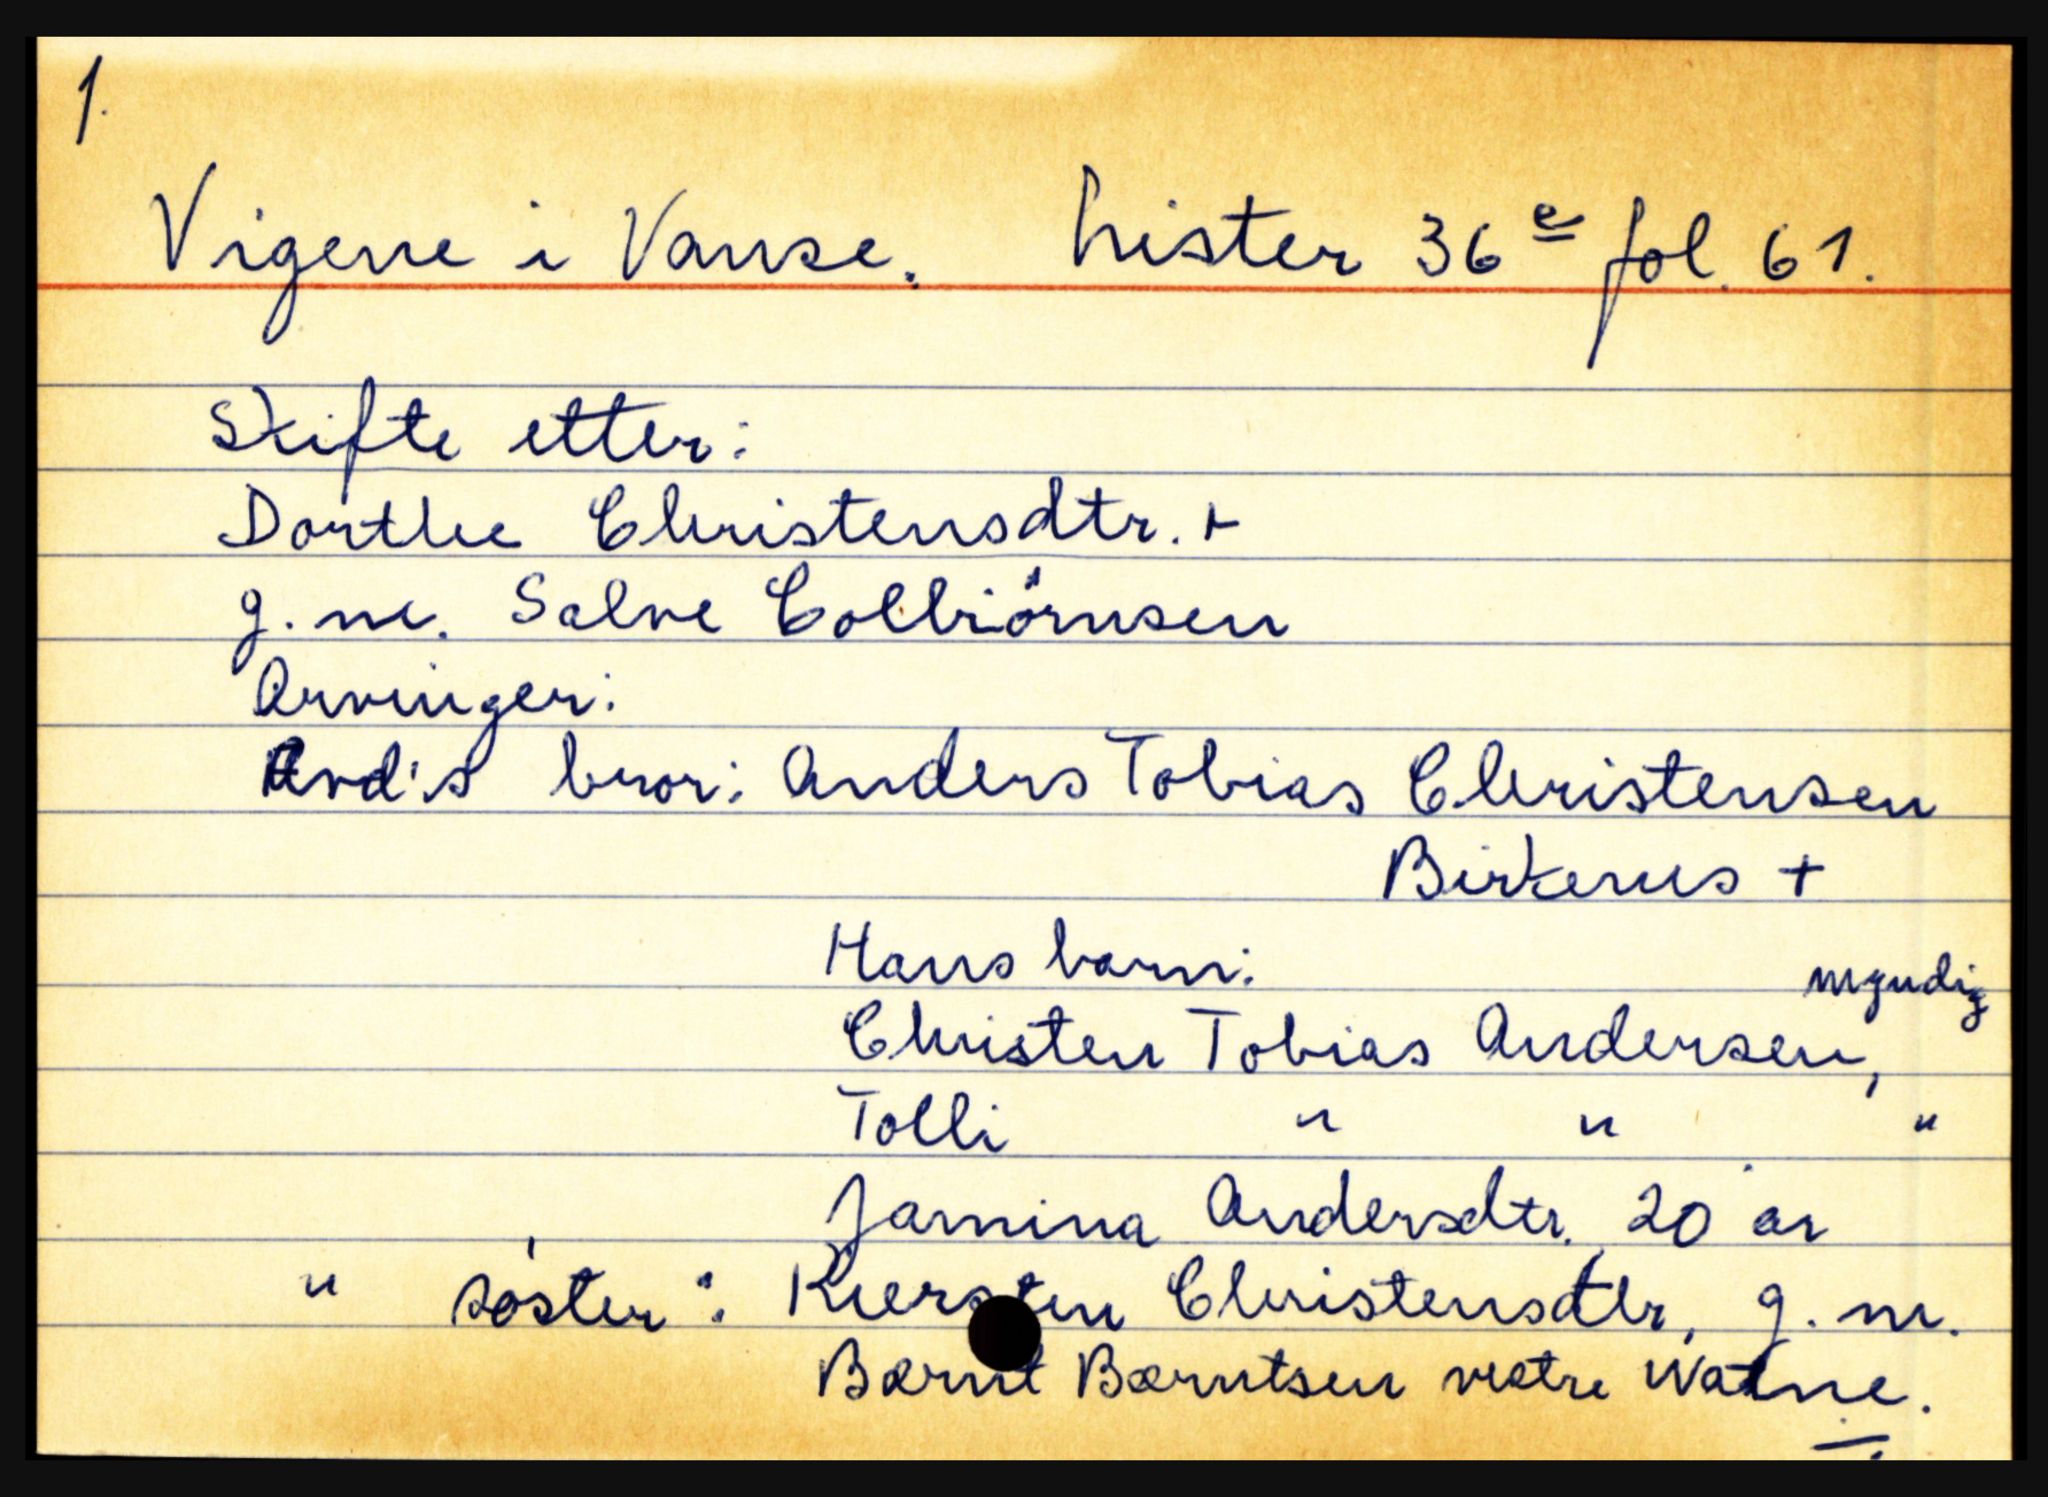 1.
Vigene i Vanse. Lister 36 e fol. 61.
Skifte etter:
Dorthe Christensdtr. +
g. m. Salve Colbiörnsen
Arvinger:
Avd's bror: Anders Tobias Christensen
Birkenes +
Hans barn:
myndig
Christen Tobias Andersen,
Tolli " " "
Jamina Andersdtr. 20 år
" søster: Kiersten Christensdtr, g. m.
Bernt Berntsen vestre Watne.